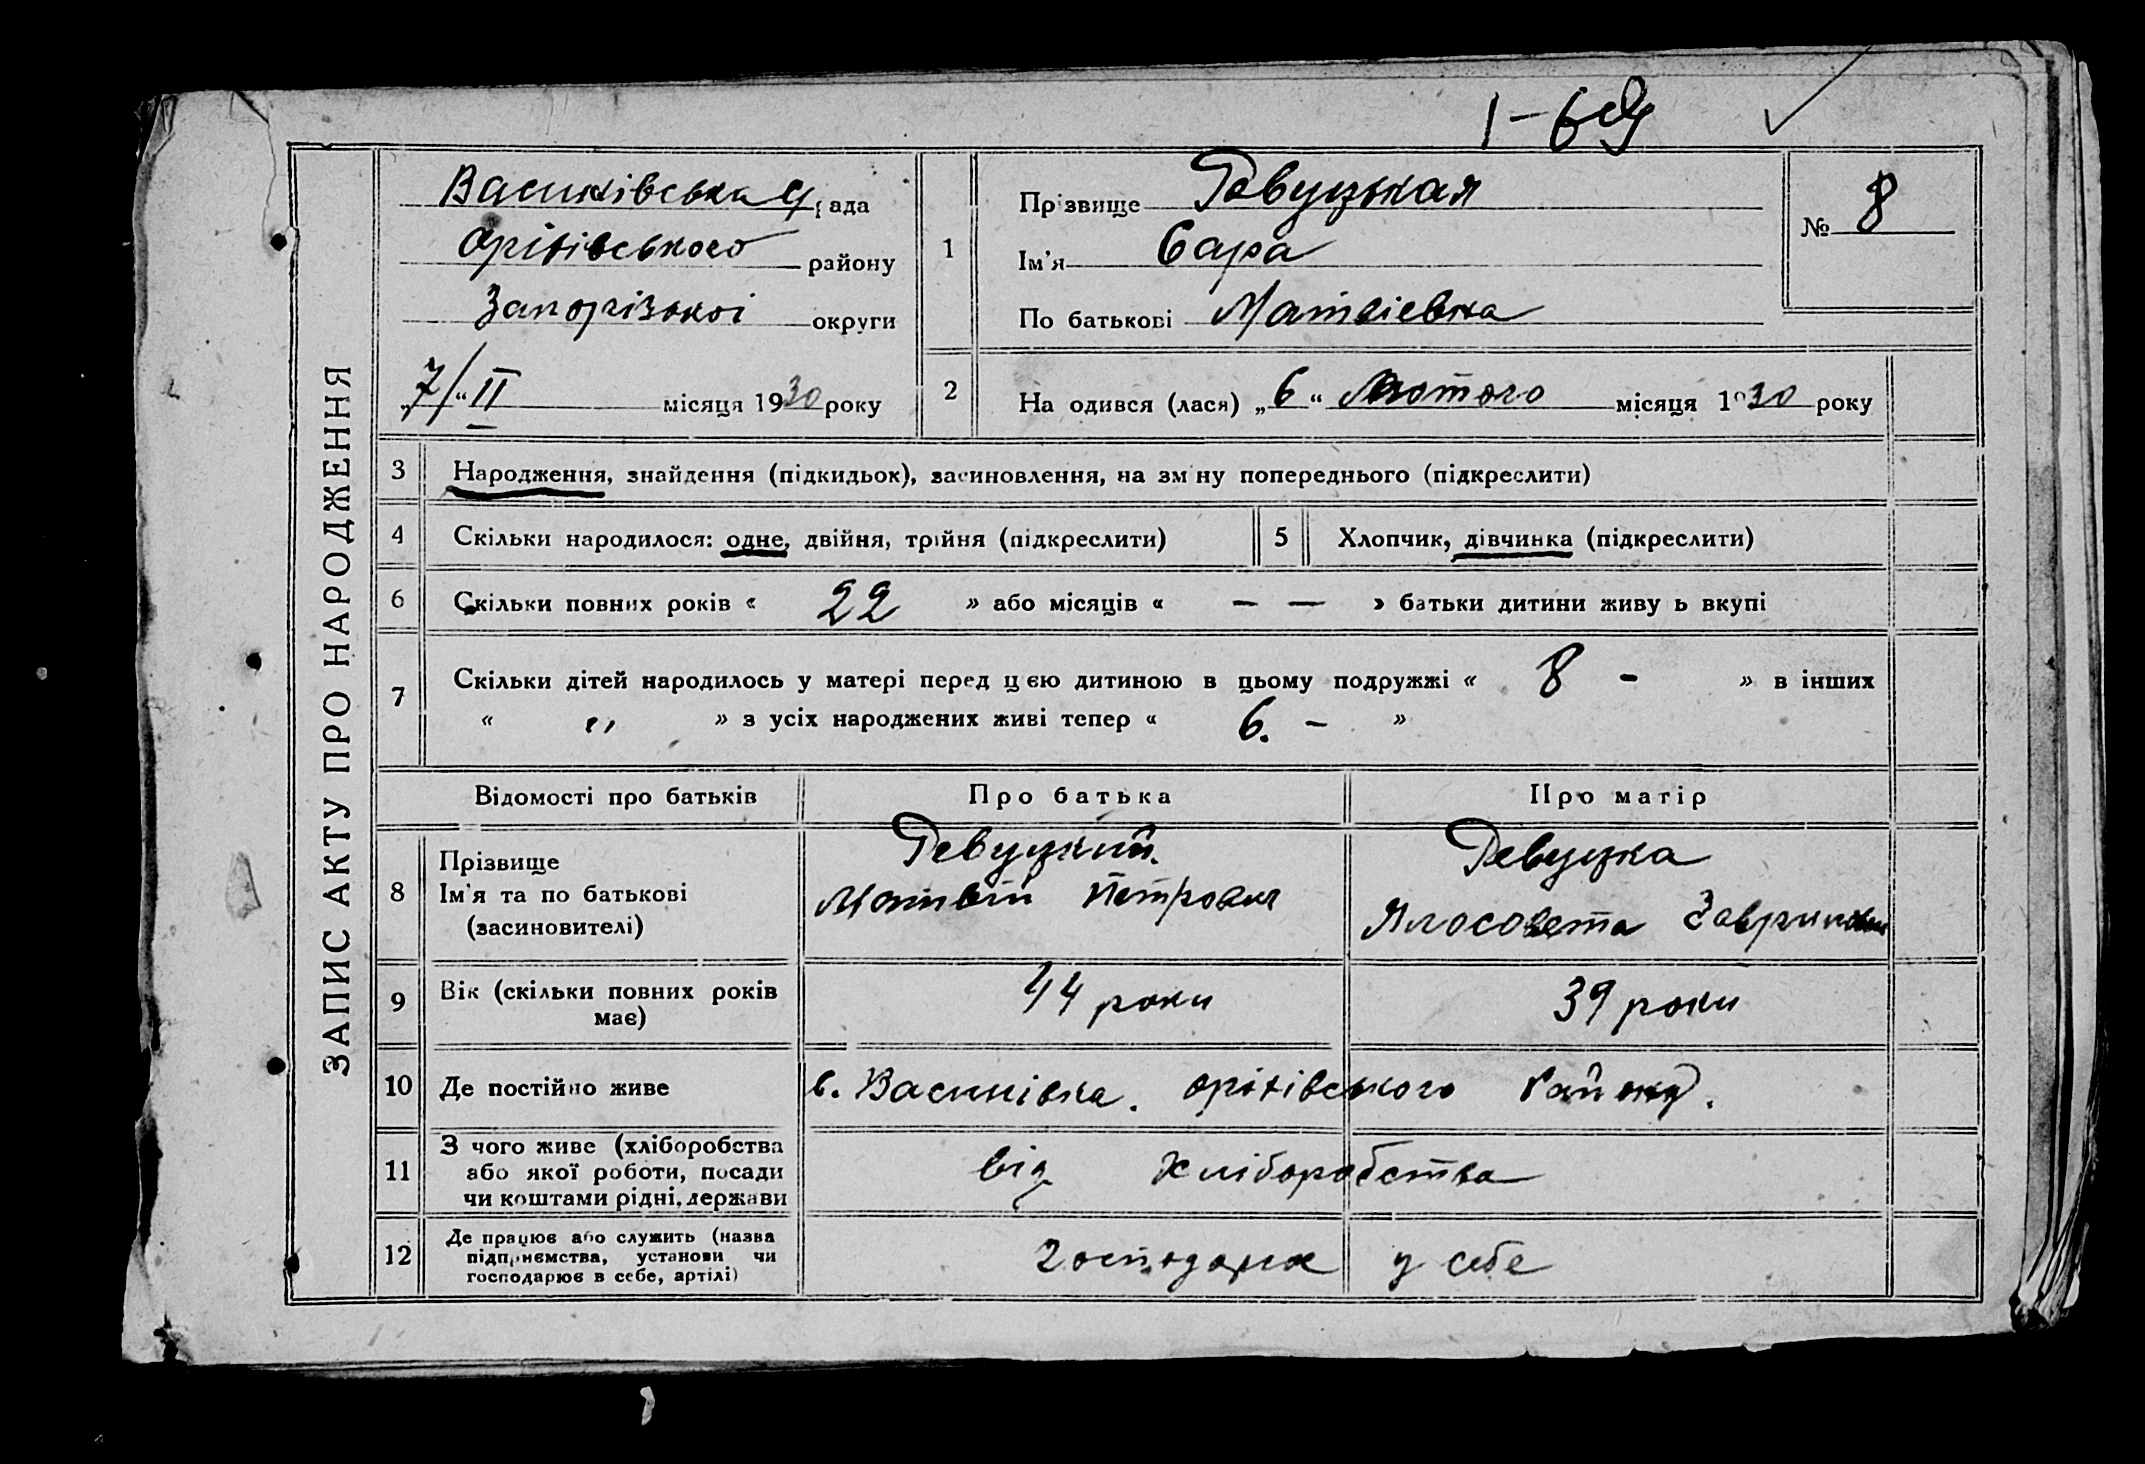 1-69
Васинівська рада
Оріхівського району
Запорізької округи
7/„ “ II місяця 1930 року
1
Прізвище Ревуцькая
Ім'я Сара
По батькові Матвієвна
№ 8
2
На одився (лася) „ 6 “ Лютого місяця 1930 року
ЗАПИС АКТУ ПРО НАРОДЖЕННЯ
3 Народження, знайдення (підкидьок), засиновлення, на зміну попереднього (підкреслити)
4 Скільки народилося: одне, двійня, трійня (підкреслити) 5 Хлопчик, дівчинка (підкреслити)
6 Скільки повних років « 22 » або місяців « — — » батьки дитини живу ь вкупі
7 Скільки дітей народилось у матері перед цією дитиною в цьому подружжі « 8 - » в інших
« „ » з усіх народжених живі тепер « 6. - »
Відомості про батьків Про батька Про матір
8 Прізвище Ревуцкий. Ревуцка
Ім'я та по батькові Матвій Петрович
(засиновителі)
9 Вік (скільки повних років має) 44 роки 39 роки
10 Де постійно живе с. Васинівка. Оріхівського Району.
11 З чого живе (хліборобства
або якої роботи, посади від Хліборобства
чи коштами рідні, держави
12 Де працює або служить (назва
підприємства, установи чи у себе
господарює в себе, артілі)